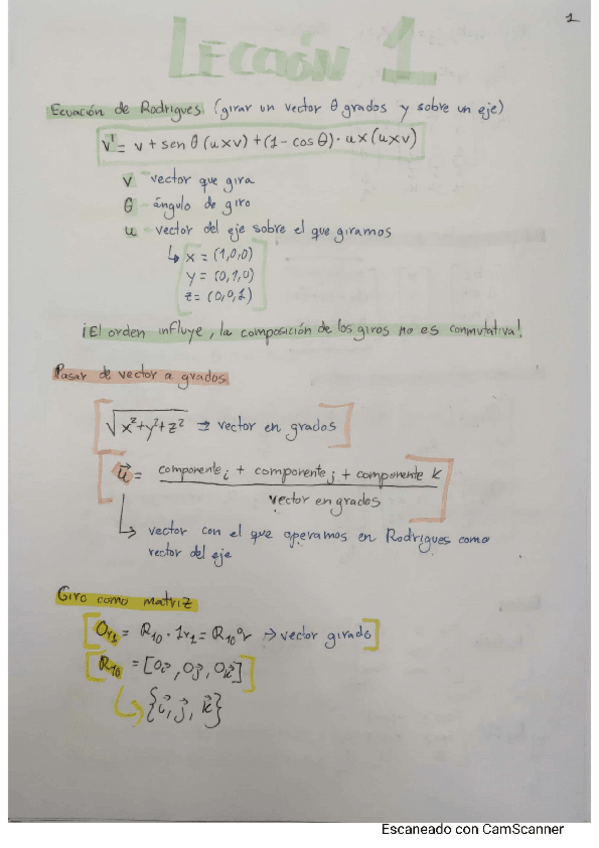 1
LECCIÓN 1
Ecuación de Rodrigues (girar un vector θ grados y sobre un eje)
v' = v + sen θ (u×v) + (1 - cos θ) · u×(u×v)
v - vector que gira
θ - ángulo de giro
u - vector del eje sobre el que giramos
↳ x = (1,0,0)
y = (0,1,0)
z = (0,0,1)
¡El orden influye, la composición de los giros no es conmutativa!
Pasar de vector a grados
√x²+y²+z² → vector en grados
u⃗ = componente i + componente j + componente k
vector en grados
↳ vector con el que operamos en Rodrigues como
vector del eje
Giro como matriz
0r₁ = R₁₀ · 1r₁ = R₁₀ 0r → vector girado
R₁₀ = [0i⃗, 0j⃗, 0k⃗]
↳ {i⃗, j⃗, k⃗}
Escaneado con CamScanner